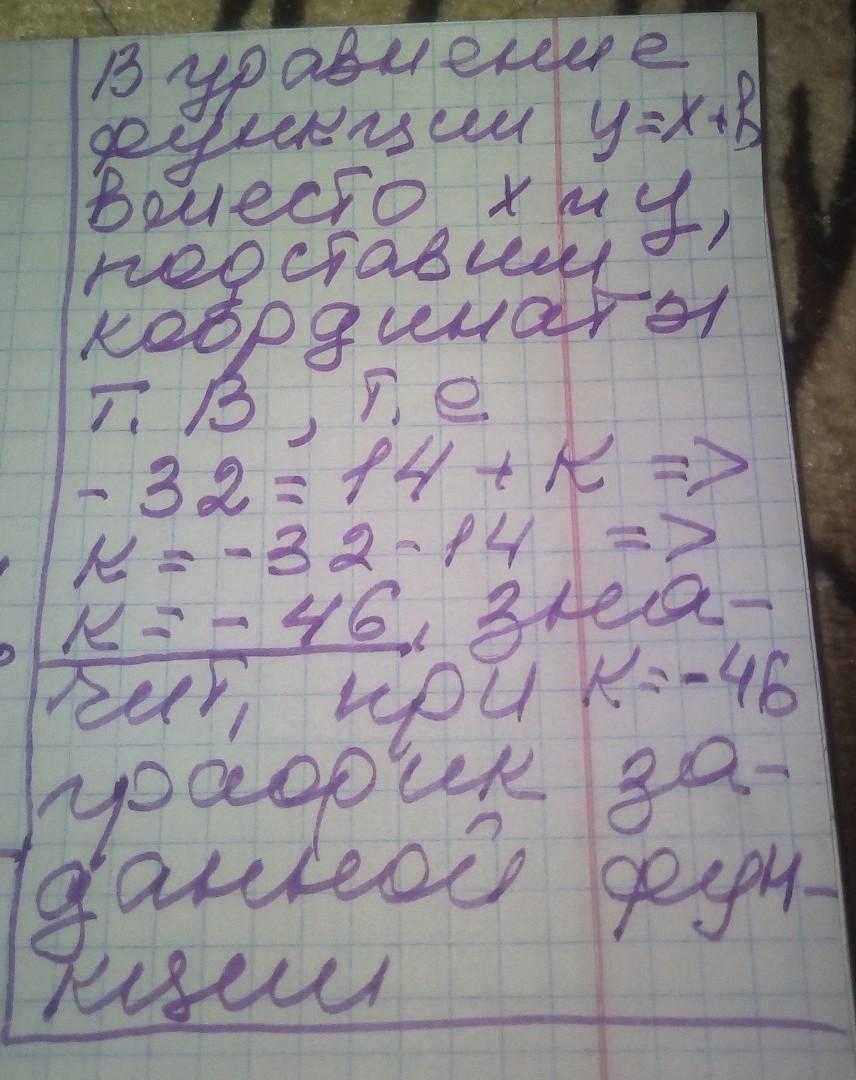 В уравнение
функции у=х+в
вместо х и у,
подставим
координаты
т. В, т. е
- 32 = 14 + к =>
к = - 32 - 14 =>
к = - 46, зна-
чит, при к=-46
график за-
данной фун-
кции